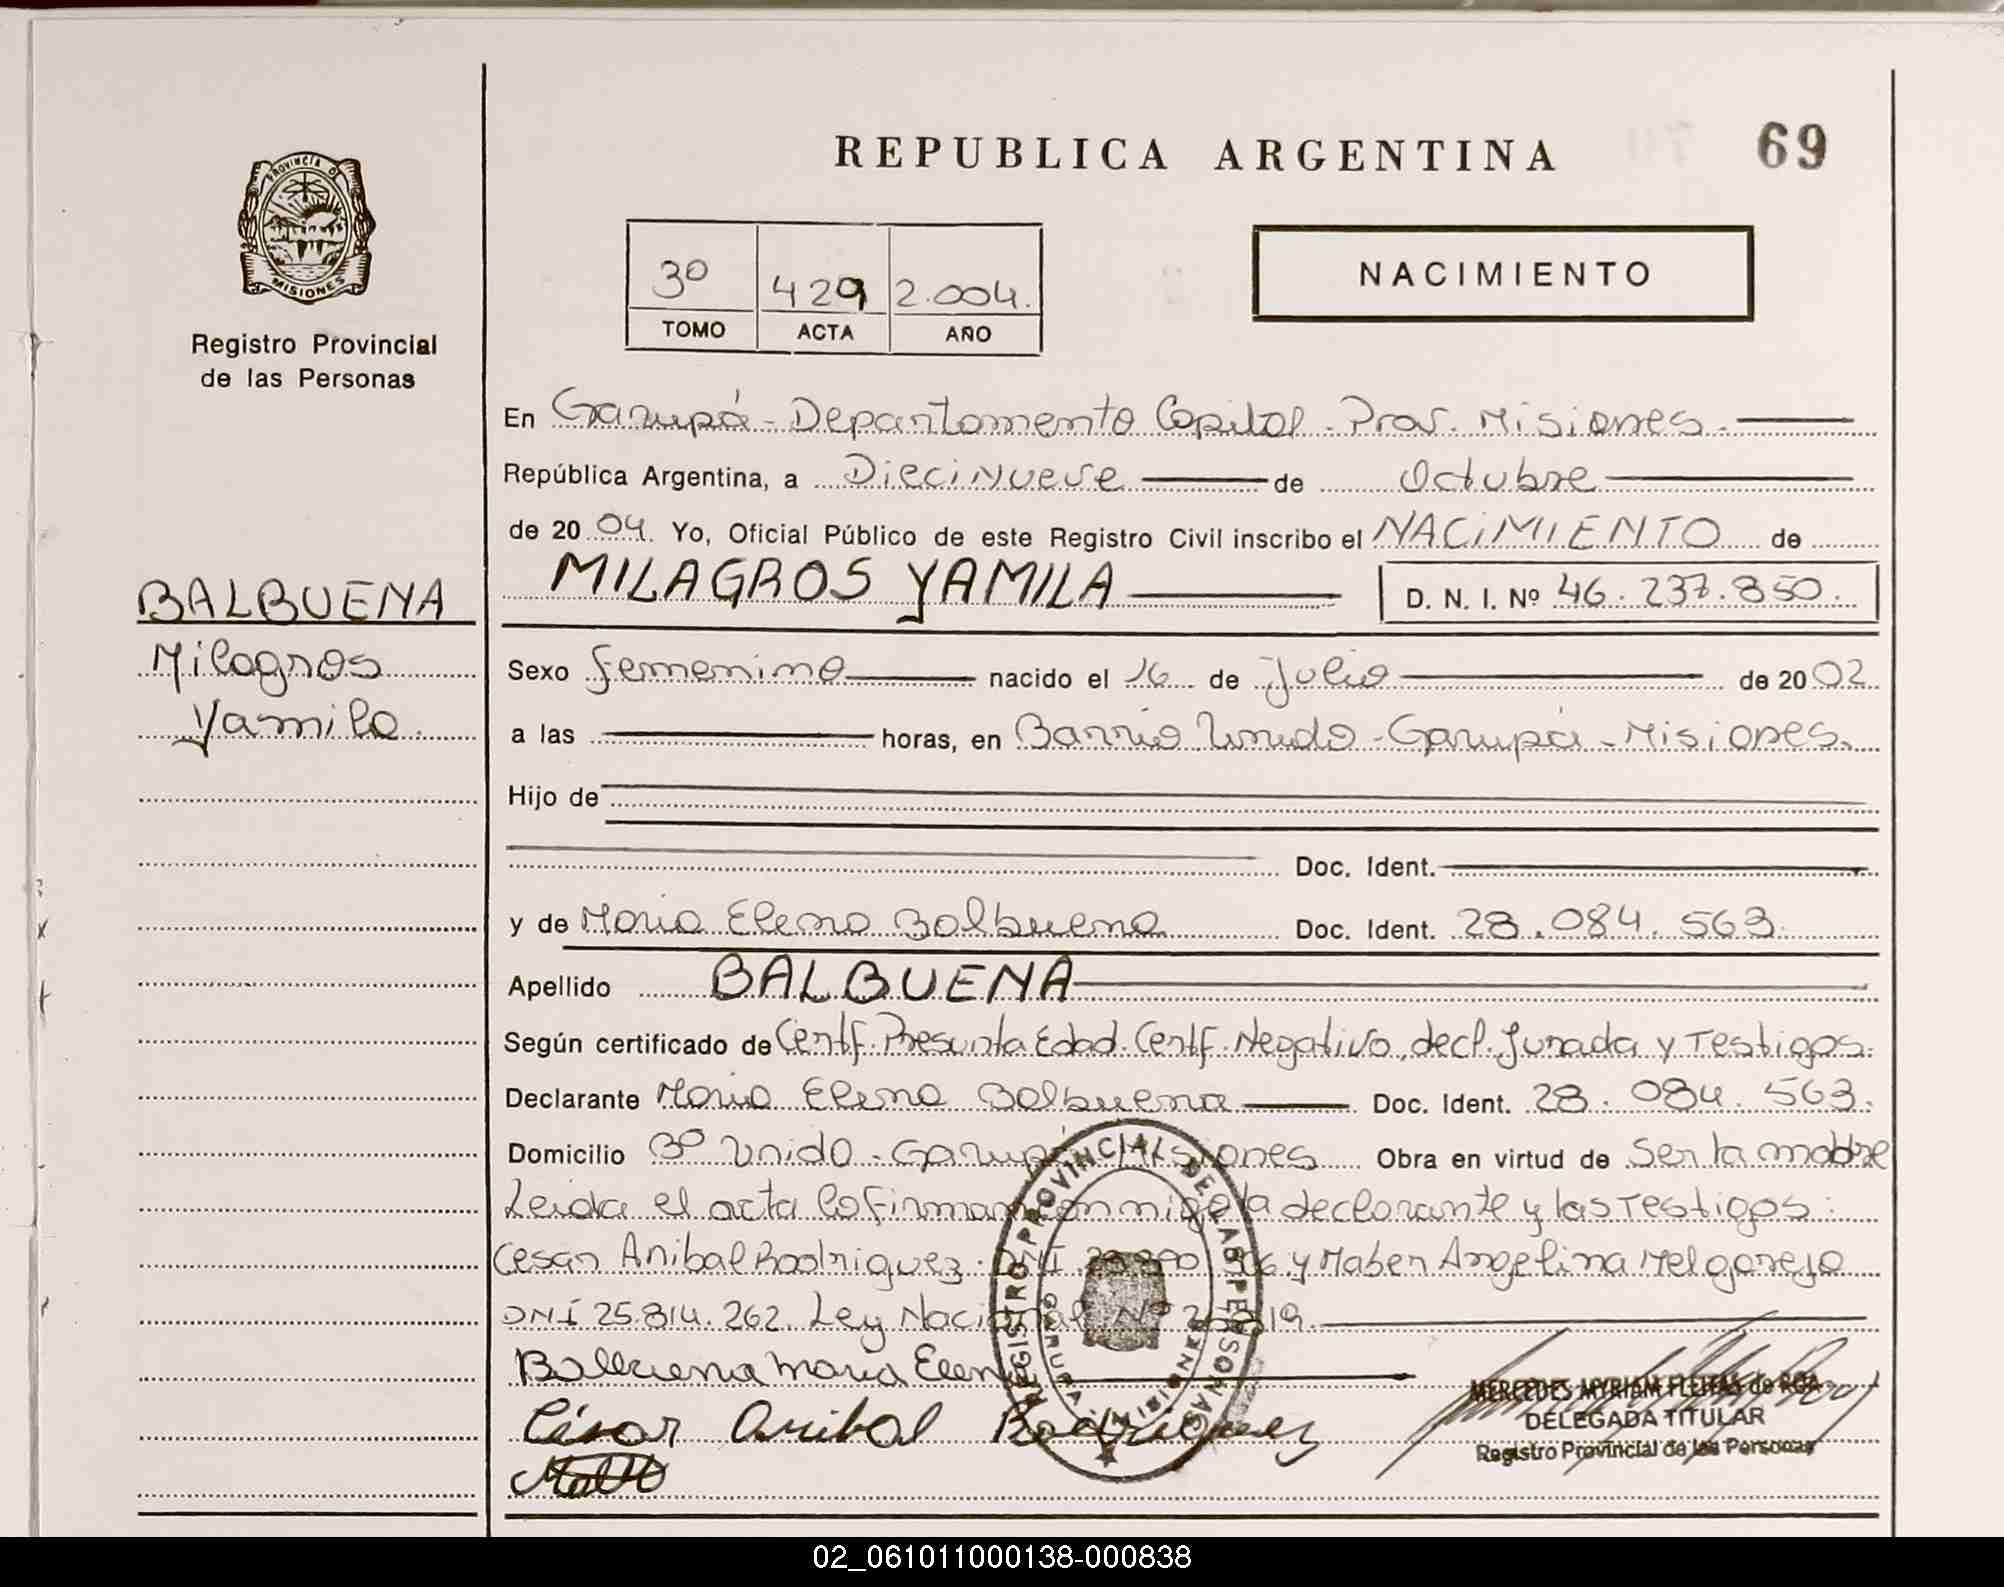 REPUBLICA ARGENTINA
69
PROVINCIA D
MISIONES
Registro Provincial
de las Personas
3º 429 2.004.
TOMO ACTA AÑO
NACIMIENTO
En Garupá - Departamento Capital - Prov. Misiones.
República Argentina, a Diecinueve de Octubre
de 20 04. Yo, Oficial Público de este Registro Civil inscribo el NACIMIENTO de
MILAGROS YAMILA D. N. I. Nº 46.237.850.
BALBUENA
Milagros
Yamila.
Sexo femenino nacido el 16 de Julio de 20 02
a las horas, en Barrio Unido - Garupá - Misiones.
Hijo de
Doc. Ident.
y de Maria Elena Balbuena Doc. Ident. 28.084.563.
Apellido BALBUENA
Según certificado de Certf. Presunta Edad. Certf. Negativo, decl. Jurada y Testigos.
Declarante Maria Elena Balbuena Doc. Ident. 28.084.563.
Domicilio Bº Unido - Garupá Misiones Obra en virtud de ser la madre
Leida el acta la firman conmigo la declarante y las Testigos:
Cesar Anibal Rodriguez. DNI y Maber Angelina Melgarejo
DNI 25.814.262. Ley Nacional Nº
Balbuena Maria Elena
César Anibal Rodriguez
REGISTRO PROVINCIAL DE LAS PERSONAS
GARUPA
MERCEDES MYRIAM FLEITAS de ROA
DELEGADA TITULAR
Registro Provincial de las Personas
02_061011000138-000838